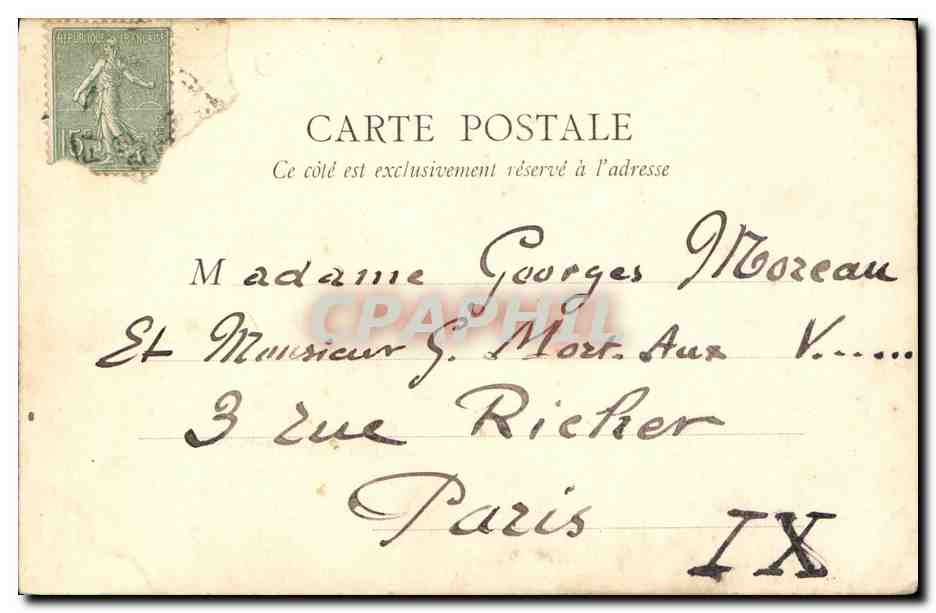 REPUBLIQUE FRANÇAISE
15
CARTE POSTALE
Ce côté est exclusivement réservé à l'adresse
Madame Georges Moreau
CPAPHIL
Et Monsieur G. Mort. Aux V......
3 rue Richer
Paris
IX